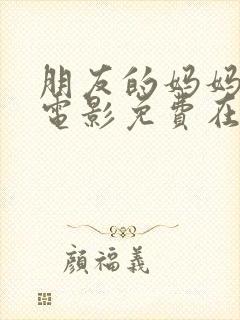 朋友的妈妈
电影免費在
顔福義